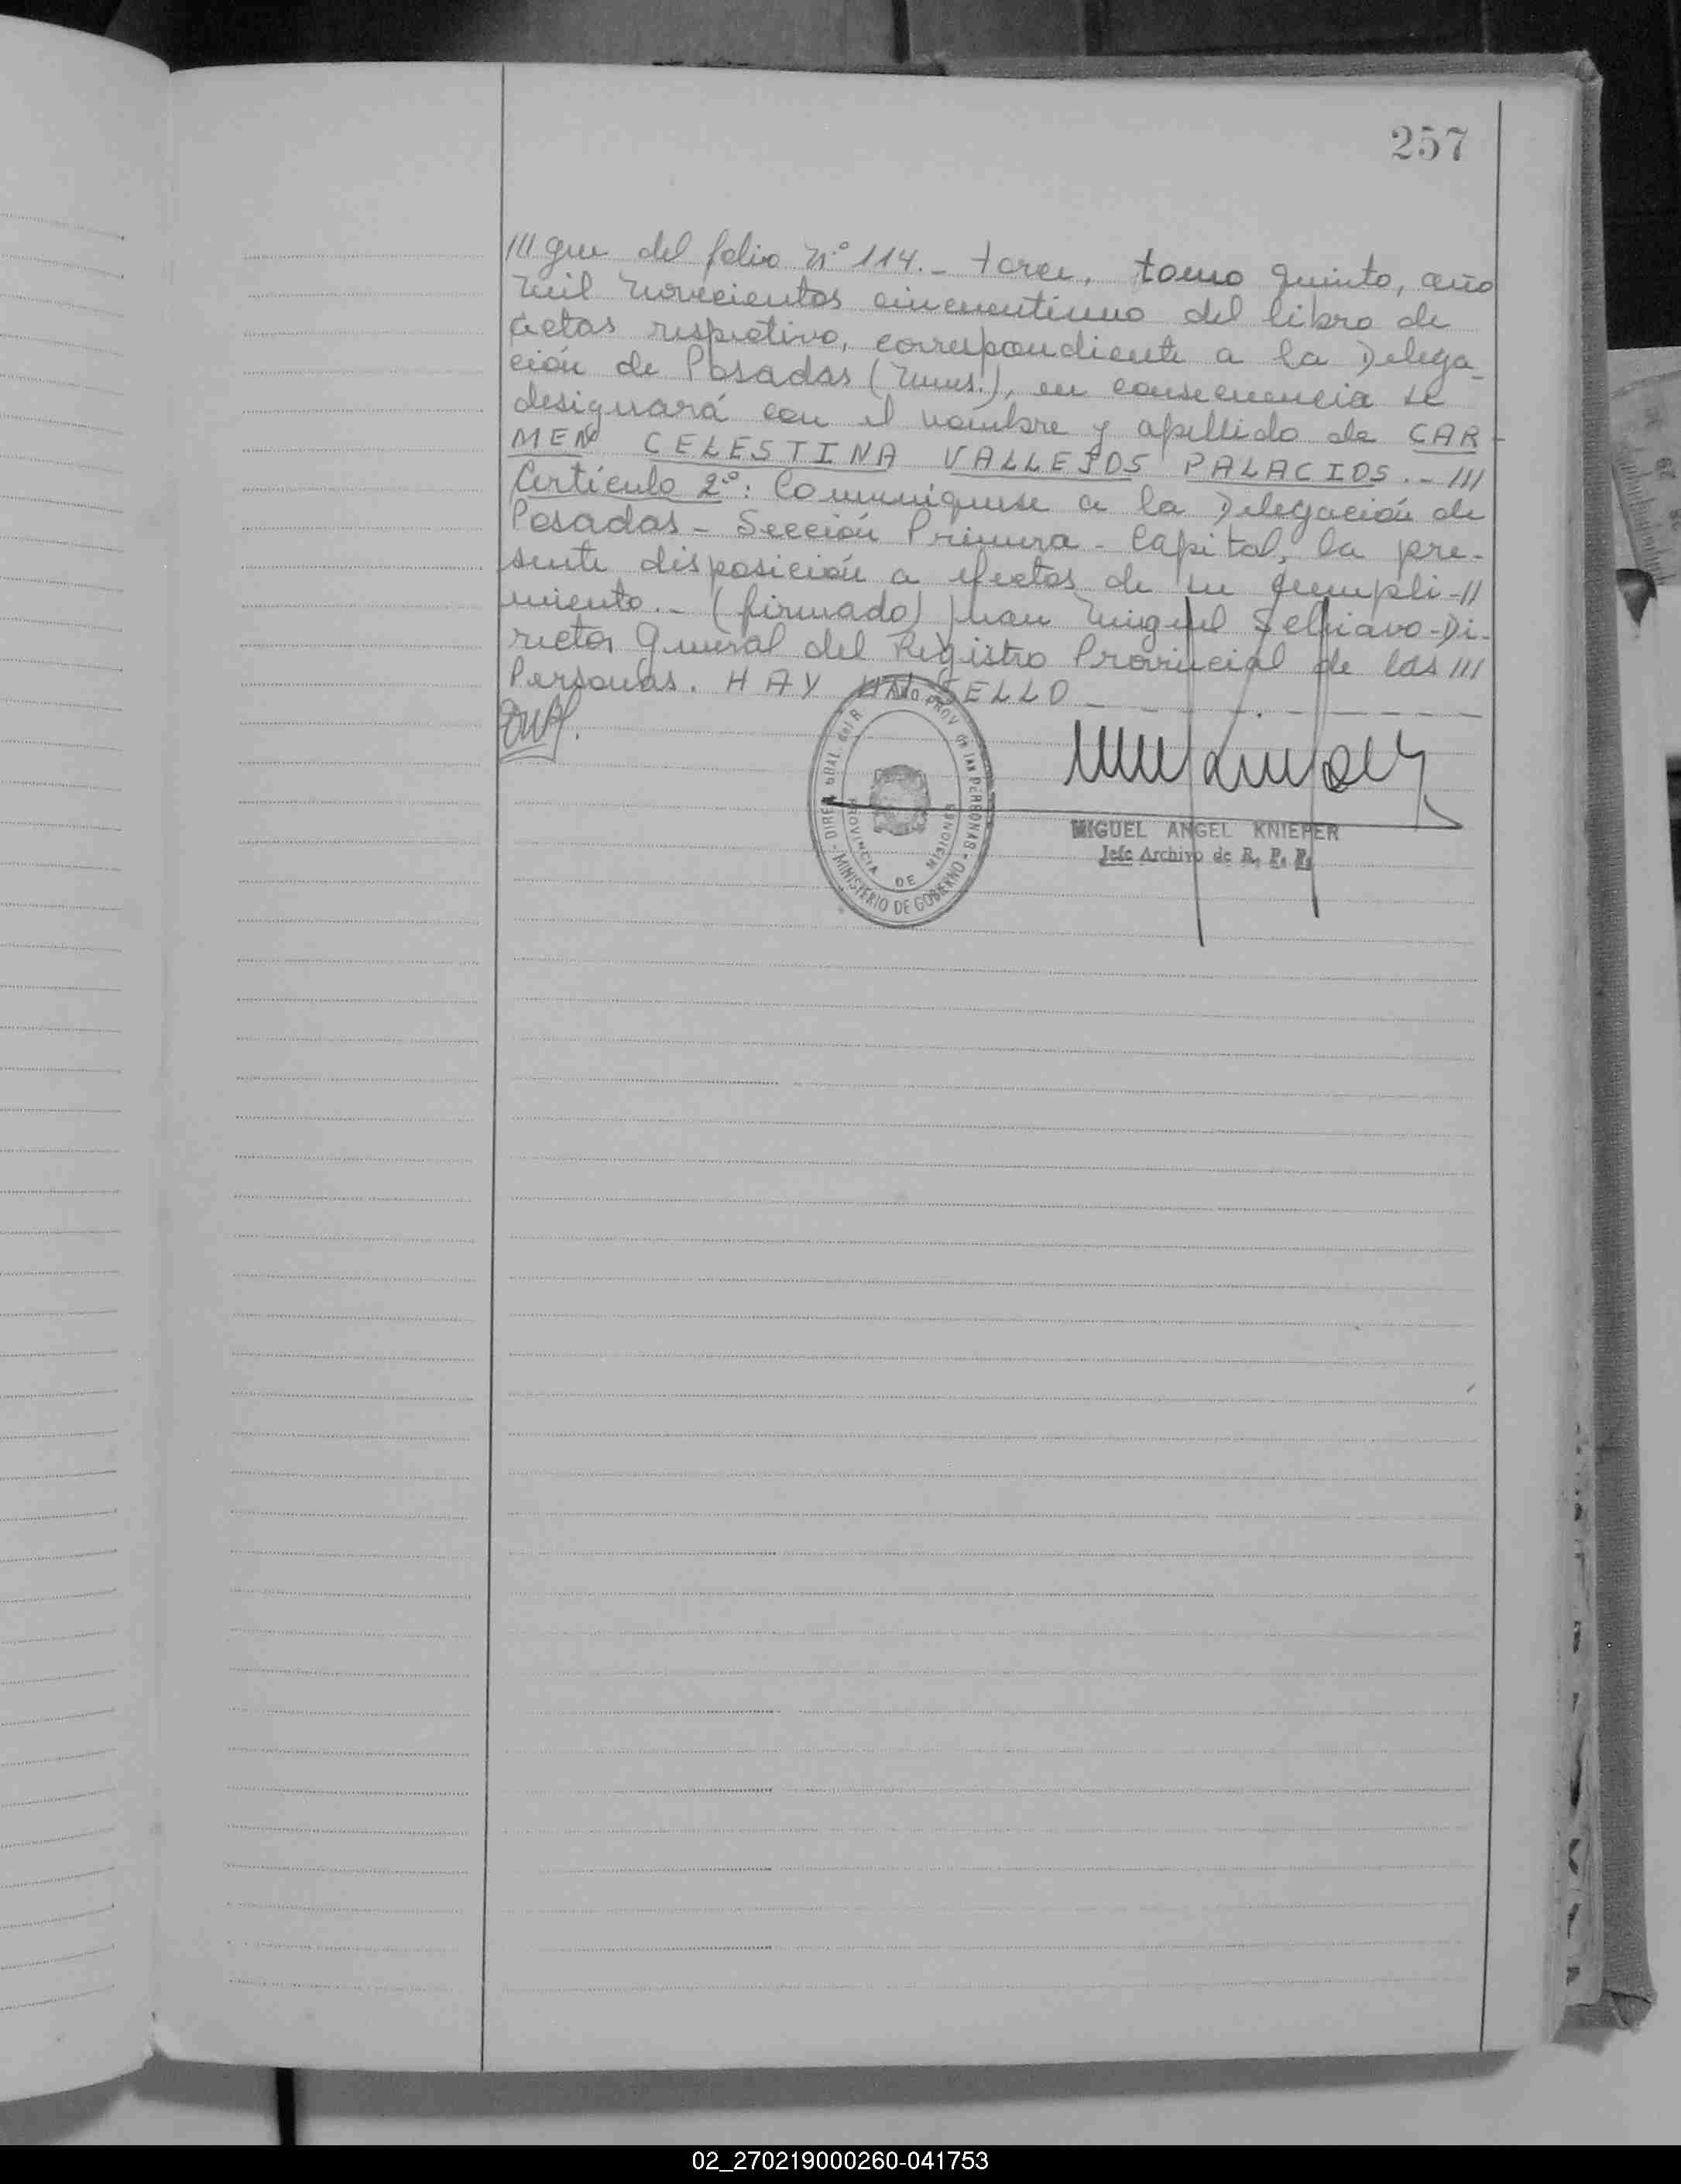 257
/// gue del folio Nº 114.- torce, tomo quinto, año
mil novecientos cincuentiuno del libro de
actas respectivo, correspondiente a la Delega-
ción de Posadas (Mnes.), en consecuencia se
designará con el nombre y apellido de CAR-
MEN CELESTINA VALLEJOS PALACIOS.- ///
Artículo 2º: Comuníquese a la Delegación de
Posadas - Sección Primera - Capital, la pre-
sente disposición a efectos de su cumpli-//
miento.- (firmado) Juan Miguel Schiavo - Di-
rector General del Registro Provincial de las ///
Personas. HAY UN SELLO
DIREC. GRAL. del R PROV de las PERSONAS - MINISTERIO DE GOBIERNO -
PROVINCIA DE MISIONES
MIGUEL ANGEL KNIEPER
Jefe Archivo de R. P. P.
02_270219000260-041753